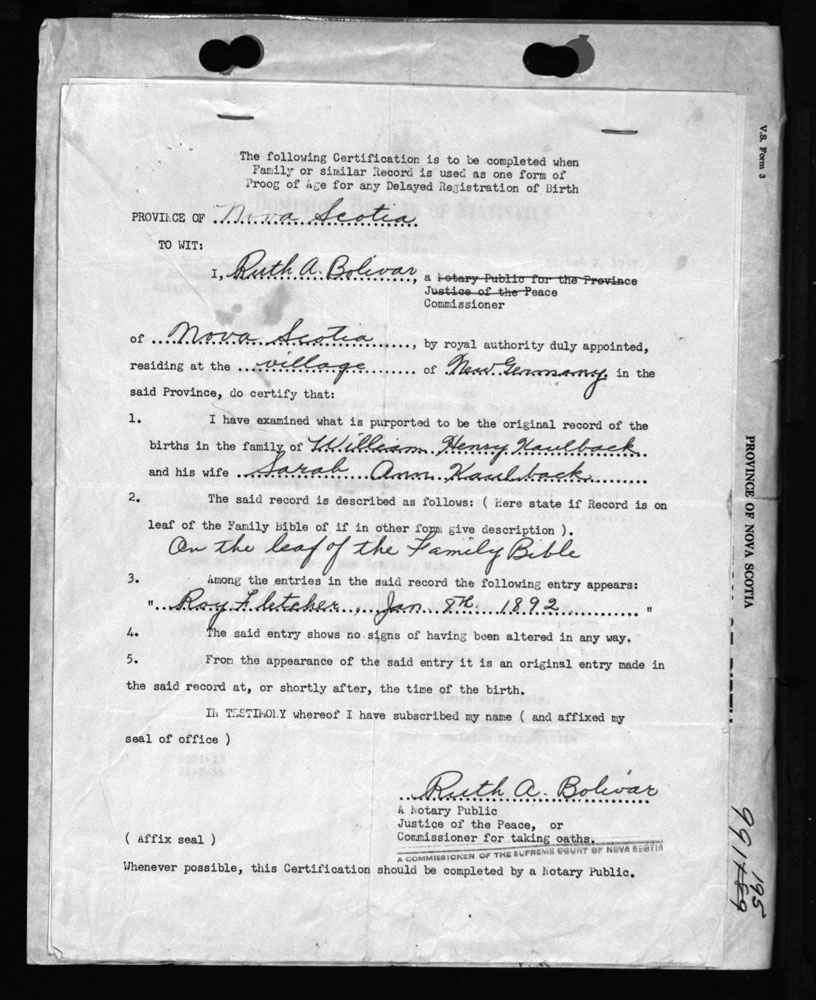 The following Certification is to be completed when
Family or similar Record is used as one form of
Proog of Age for any Delayed Registration of Birth
PROVINCE OF Nova Scotia
TO WIT:
I, Ruth A. Bolivar, a Notary Public for the Province
Justice of the Peace
Commissioner
of Nova Scotia, by royal authority duly appointed,
residing at the village of New Germany, in the
said Province, do certify that:
1. I have examined what is purported to be the original record of the
births in the family of William Henry Kaulback
and his wife Sarah Ann Kaulback
2. The said record is described as follows: ( Here state if Record is on
leaf of the Family Bible of if in other form give description ).
On the leaf of the Family Bible
3. Among the entries in the said record the following entry appears:
" Roy Fletcher, Jan 8th 1892 "
4. The said entry shows no signs of having been altered in any way.
5. From the appearance of the said entry it is an original entry made in
the said record at, or shortly after, the time of the birth.
IN TESTIMONY whereof I have subscribed my name ( and affixed my
seal of office )
Ruth A. Bolivar
A Notary Public
Justice of the Peace, or
( Affix seal ) Commissioner for taking oaths.
A COMMISSIONER OF THE SUPREME COURT OF NOVA SCOTIA
Whenever possible, this Certification should be completed by a Notary Public.
V.S. Form 3
PROVINCE OF NOVA SCOTIA
195